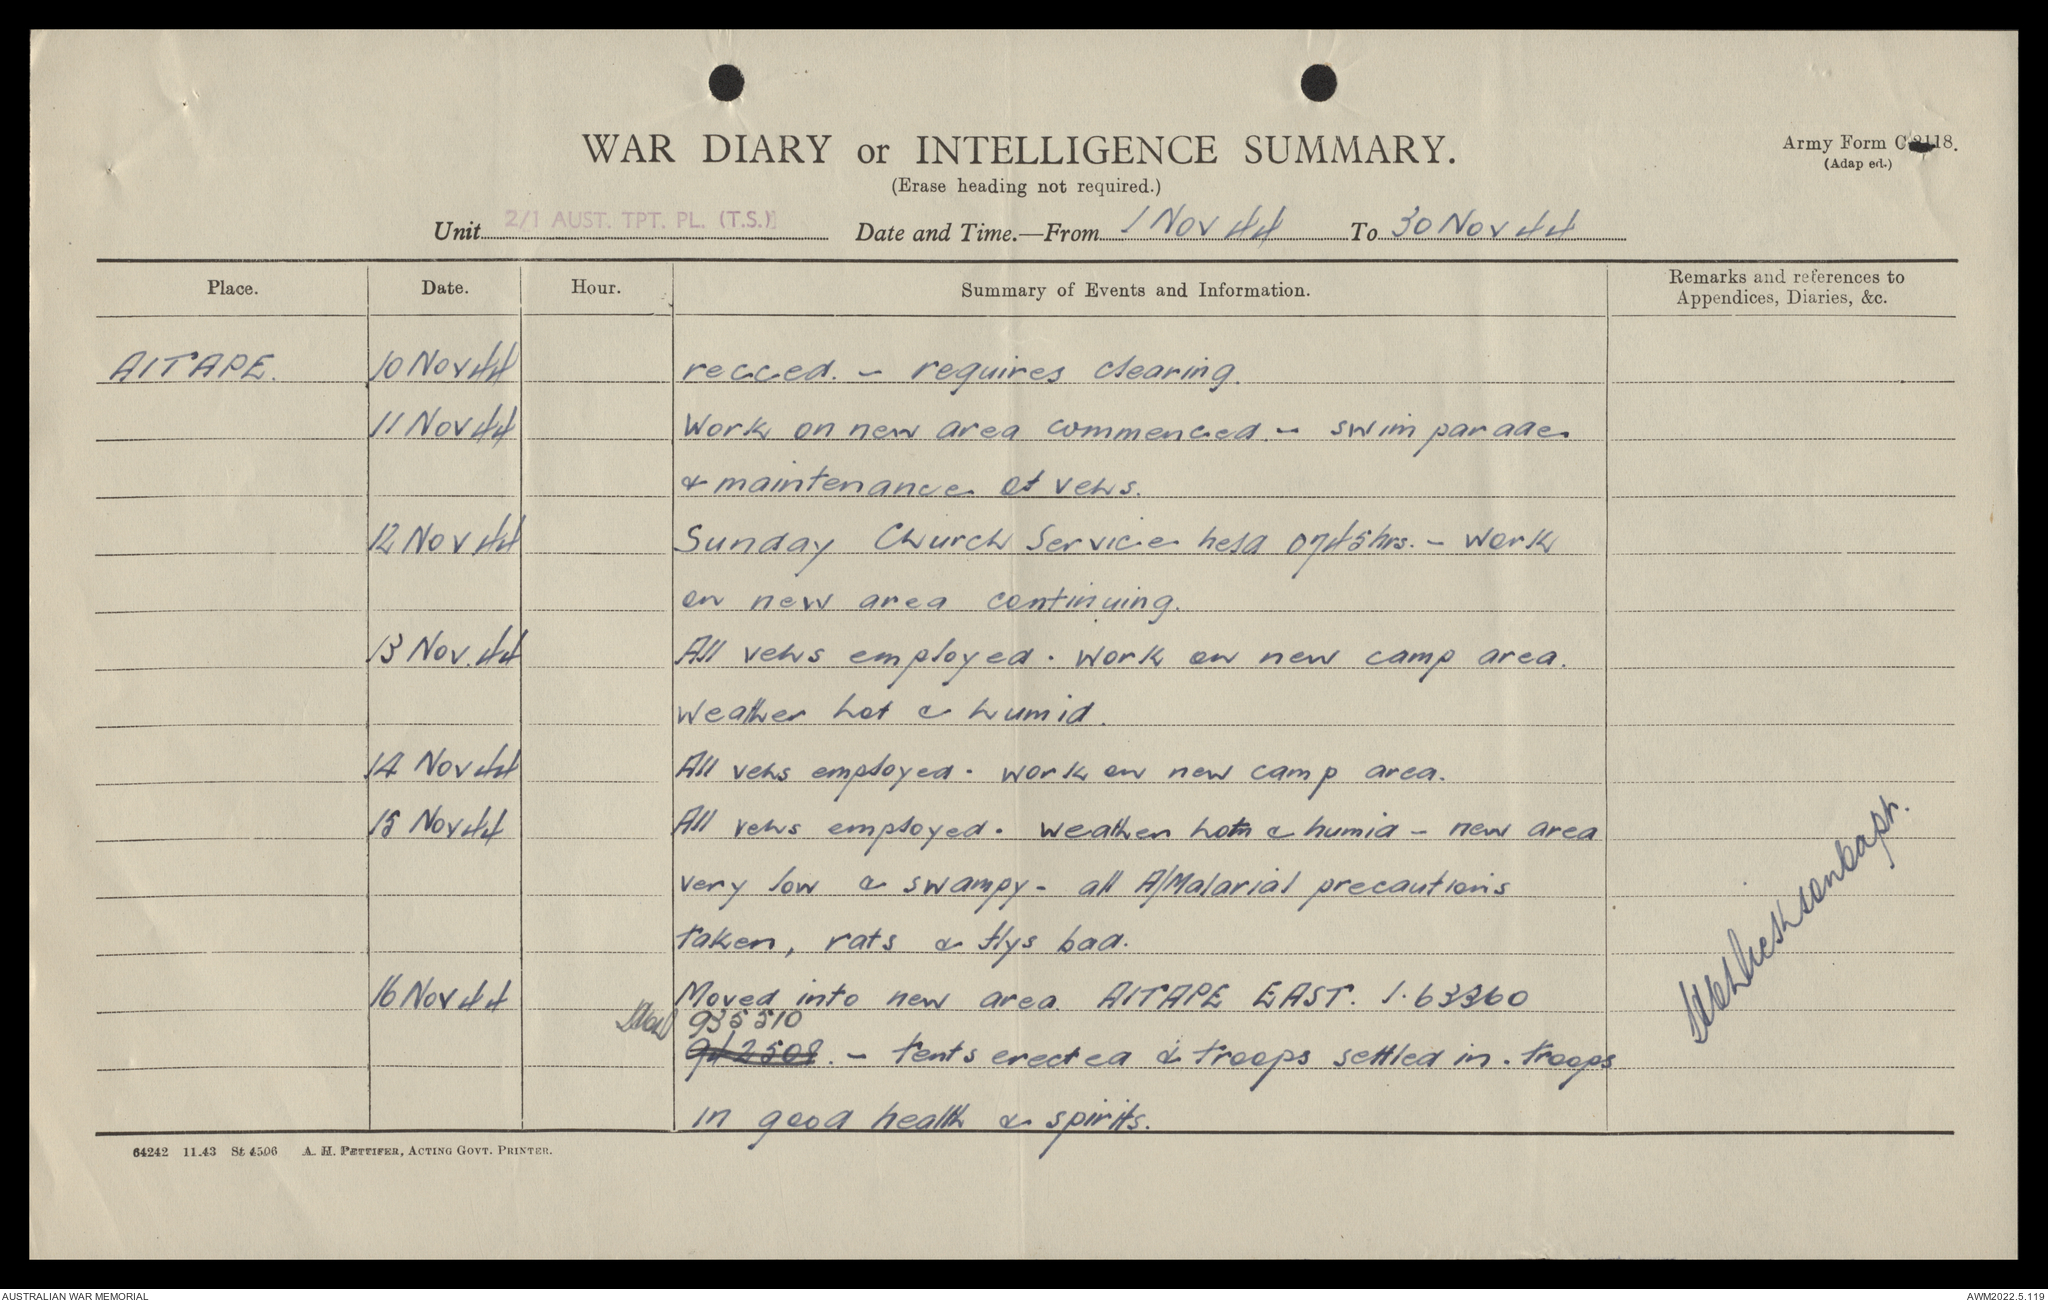 WAR DIARY or INTELLIGENCE SUMMARY.
Army Form C 2118.
(Adap ed.)
(Erase heading not required.)
Unit 2/1 AUST. TPT. PL. (T.S.) Date and Time.—From 1 Nov 44 To 30 Nov 44
Place. Date. Hour. Summary of Events and Information. Remarks and references to Appendices, Diaries, &c.
AITAPE. 10 Nov 44 recced. - requires clearing.
11 Nov 44 Work on new area commenced. - swim parade
& maintenance of vehs.
12 Nov 44 Sunday Church Service held 0745 hrs. - work
on new area continuing.
13 Nov. 44 All vehs employed. work on new camp area.
Weather hot & humid.
14 Nov 44 All vehs employed. work on new camp area.
15 Nov 44 All vehs employed. weather hot & humid - new area
very low & swampy - all A/Malarial precautions
taken, rats & flys bad.
16 Nov 44 Moved into new area. AITAPE EAST. 1.63360
935510
942508. - tents erected & troops settled in. troops
in good health & spirits.
capt.
64242 11.43 St 4506 A. H. PETTIFER, ACTING GOVT. PRINTER.
AUSTRALIAN WAR MEMORIAL
AWM2022.5.119